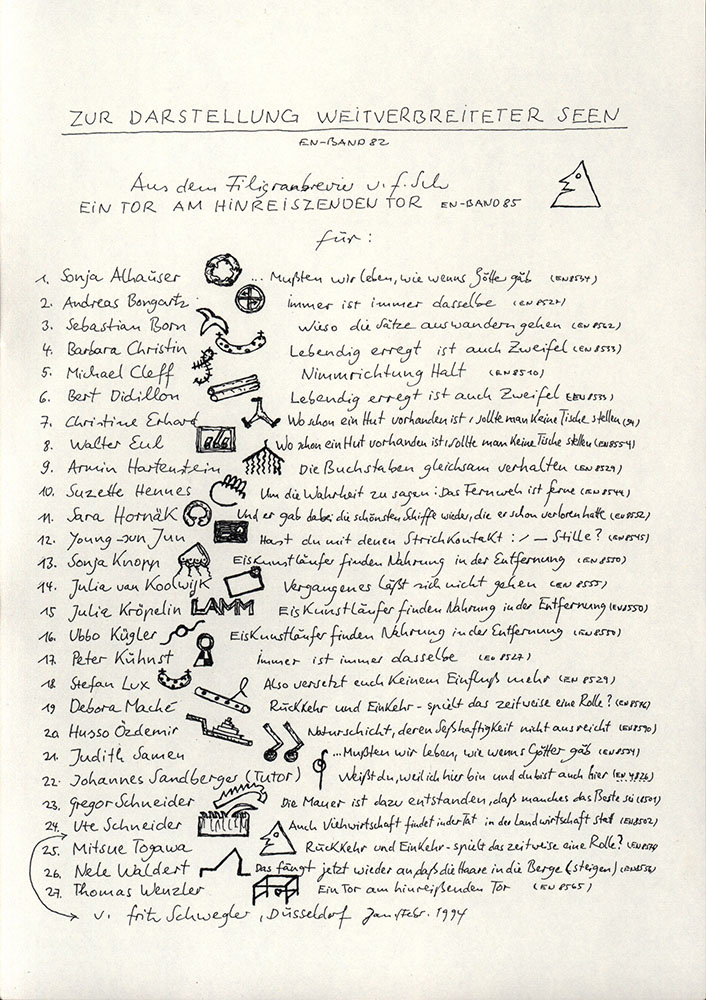 ZUR DARSTELLUNG WEITVERBREITETER SEEN
EN-BAND 82
Aus dem Filigranbrevier v. f. Sch
EIN TOR AM HINREISZENDEN TOR EN-BAND 85
für:
1. Sonja Alhäuser ... Mußten wir leben, wie wenns Götter gäb (EN8534)
2. Andreas Bongartz immer ist immer dasselbe (EN8527)
3. Sebastian Born Wieso die Sätze auswandern gehen (EN8562)
4. Barbara Christin Lebendig erregt ist auch Zweifel (EN8533)
5. Michael Cleff Nimmrichtung Halt (EN8510)
6. Bert Didillon Lebendig erregt ist auch Zweifel (EN8533)
7. Christine Erhard Wo schon ein Hut vorhanden ist, sollte man keine Tische stellen
8. Walter Eul Wo schon ein Hut vorhanden ist, sollte man keine Tische stellen (EN8554)
9. Armin Hartenstein Die Buchstaben gleichsam verhalten (EN8529)
10. Suzette Hennes Um die Wahrheit zu sagen: Das Fernweh ist ferne (EN8544)
11. Sara Hornäk Und er gab dabei die schönsten Schiffe wieder, die er schon verloren hatte (EN8552)
12. Young-sun Jun Hast du mit denen Strichkontakt :/ — Stille? (EN8545)
13. Sonja Knopp Eiskunstläufer finden Nahrung in der Entfernung (EN8550)
14. Julia van Koolwijk Vergangenes läßt sich nicht gehen (EN 8555)
15 Julia Kröpelin LAMM Eiskunstläufer finden Nahrung in der Entfernung (EN8550)
16. Ubbo Kügler Eiskunstläufer finden Nahrung in der Entfernung (EN8550)
17. Peter Kühnst immer ist immer dasselbe (EN 8527)
18 Stefan Lux Also versetzt euch keinem Einfluß mehr (EN 8529)
19 Debora Maché Rückkehr und Einkehr - spielt das zeitweise eine Rolle?
20 Husso Özdemir Naturschicht, deren Seßhaftigkeit nicht ausreicht (EN8540)
21. Judith Samen ... Mußten wir leben, wie wenns Götter gäb (EN8534)
22. Johannes Sandberger (Tutor) Weißt du, weil ich hier bin und du bist auch hier (EN 4826)
23. Gregor Schneider Die Mauer ist dazu entstanden, daß manches das Beste sei (8501)
24. Ute Schneider Auch Viehwirtschaft findet in der Tat in der Landwirtschaft statt (EN8502)
25. Mitsue Togawa Rückkehr und Einkehr - spielt das zeitweise eine Rolle?
26. Nele Waldert Das fängt jetzt wieder an daß die Haare in die Berge (steigen)
27. Thomas Wenzler Ein Tor am hinreißenden Tor (EN 8565)
v. fritz Schwegler, Düsseldorf Jan/Febr. 1994